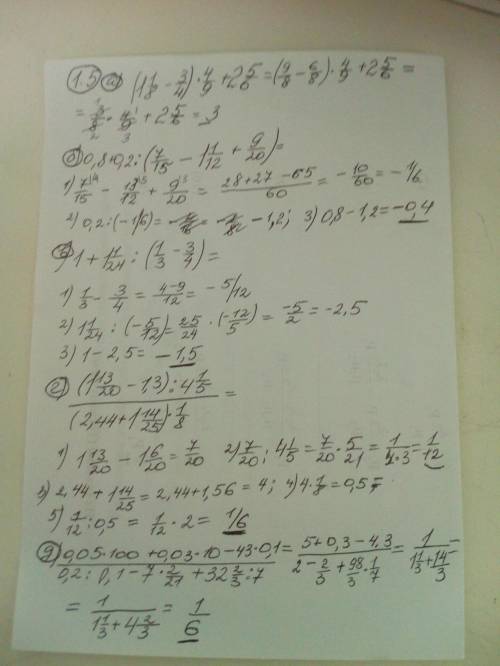 1.5 а) (1 1/8 − 3/4) · 4/9 + 2 5/6 = (9/8 − 6/8) · 4/9 + 2 5/6 =
= 3/8 · 4/9 + 2 5/6 = 3
б) 0,8 + 0,2 : (7/15 − 1 1/12 + 9/20) =
1) 7/15 − 13/12 + 9/20 = (28 + 27 − 65)/60 = − 10/60 = − 1/6
2) 0,2 : (−1/6) = − 1,2; 3) 0,8 − 1,2 = −0,4
в) 1 + 1 1/24 : (1/3 − 3/4) =
1) 1/3 − 3/4 = (4−9)/12 = − 5/12
2) 1 1/24 : (− 5/12) = 25/24 · (− 12/5) = −5/2 = −2,5
3) 1 − 2,5 = − 1,5
г) ((1 13/20 − 1,3) : 4 1/5) / ((2,44 + 1 14/25) · 1/8) =
1) 1 13/20 − 1 6/20 = 7/20 2) 7/20 : 4 1/5 = 7/20 · 5/21 = 1/(4·3) = 1/12
3) 2,44 + 1 14/25 = 2,44 + 1,56 = 4; 4) 4 · 1/8 = 0,5
5) 1/12 : 0,5 = 1/12 · 2 = 1/6
д) (0,05·100 + 0,03·10 − 43·0,1) / (0,2 : 0,1 − 7 · 2/21 + 32 2/3 : 7) = (5 + 0,3 − 4,3) / (2 − 2/3 + 98/3 · 1/7) = 1 / (1 1/3 + 14/3) =
= 1 / (1 1/3 + 4 2/3) = 1/6